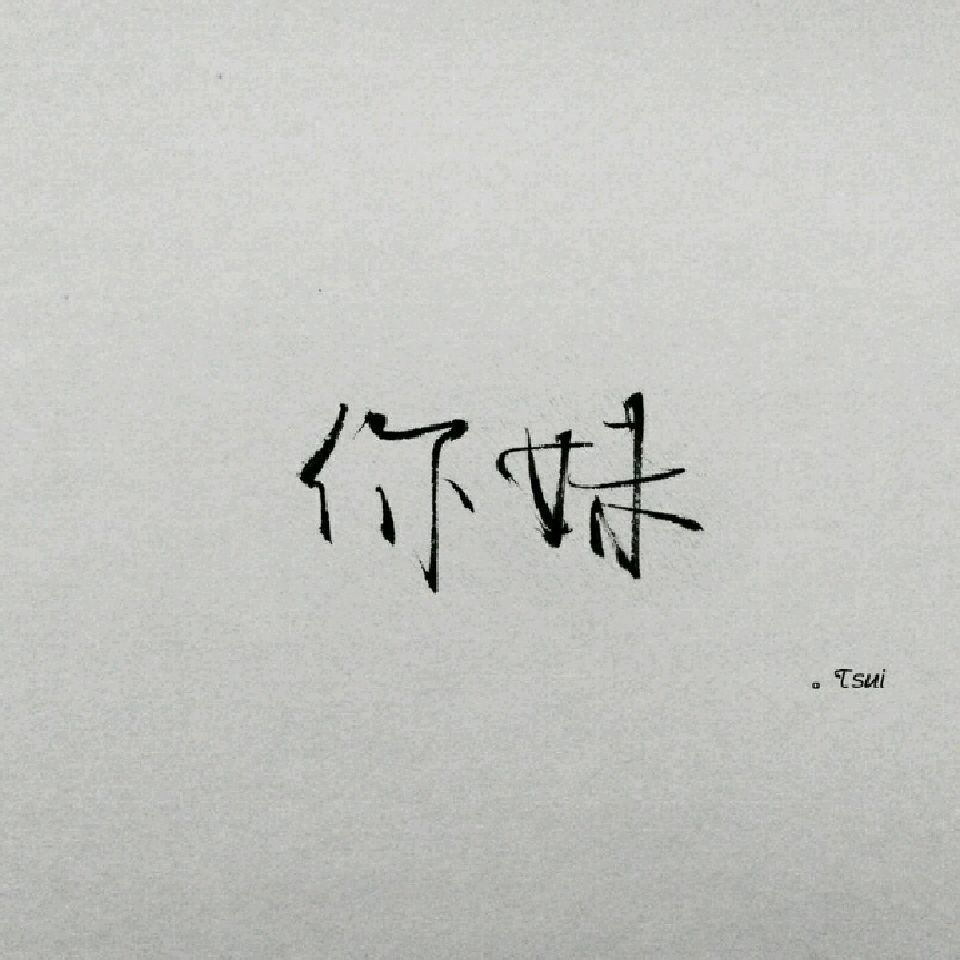 你妹
。Tsui